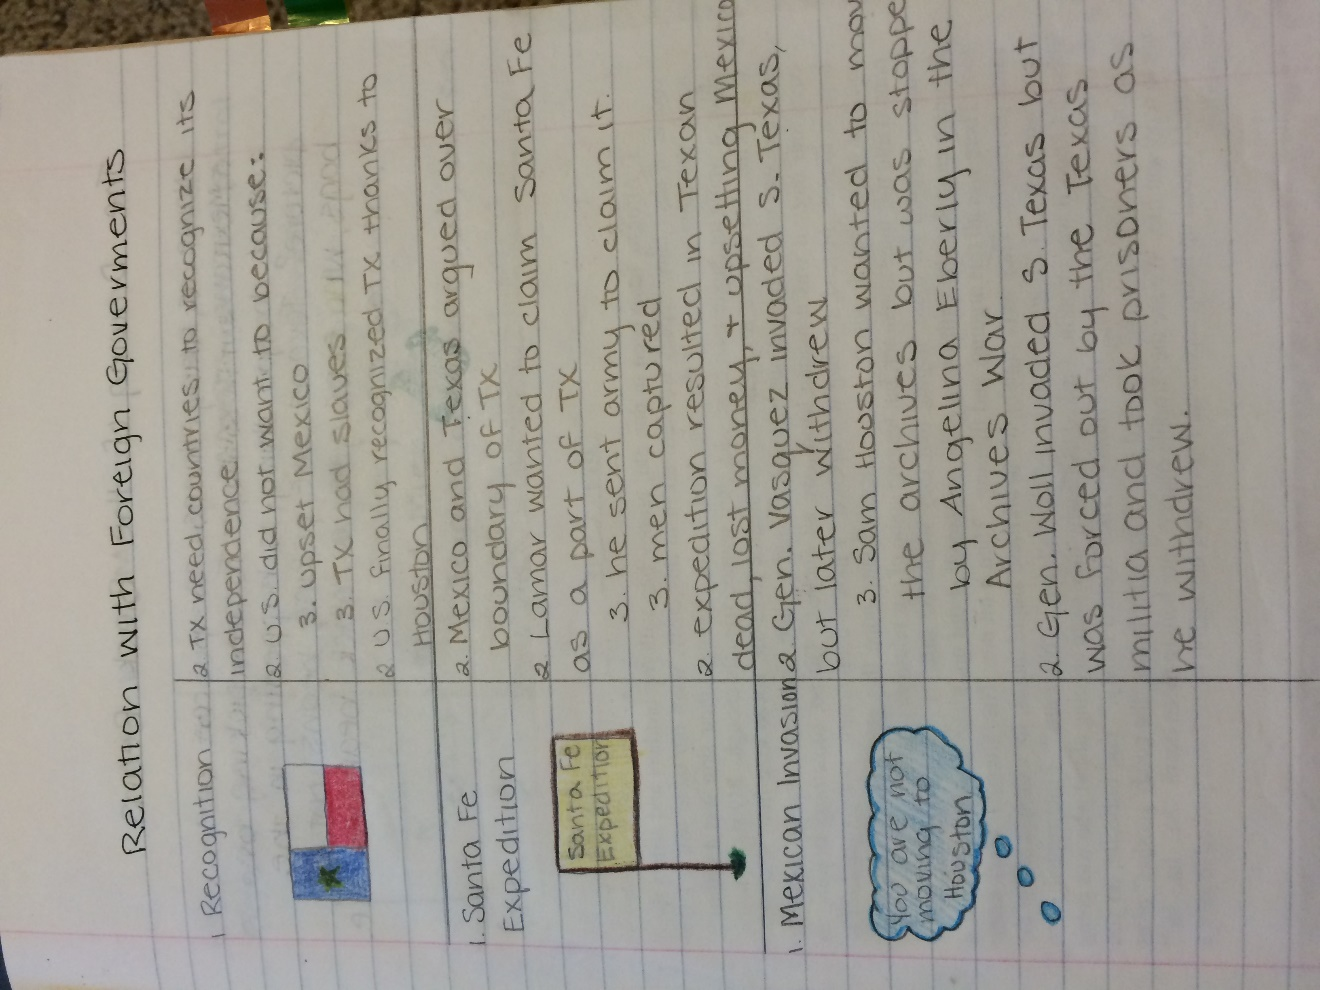 Relation with Foreign Goverments
1 Recognition
2 TX need countries to recognize its
independence
2 U.S. did not want to because:
3. upset Mexico
3. TX had slaves
2 U.S. finally recognized TX thanks to
Houston
1. Santa Fe
Expedition
Santa Fe
Expedition
2. Mexico and Texas argued over
boundary of TX
2 Lamar wanted to claim Santa Fe
as a part of TX
3. he sent army to claim it.
3. men captured
2. expedition resulted in Texan
dead, lost money, + upsetting Mexico
1. Mexican Invasion
You are not
moving to
Houston
2 Gen. Vasquez invaded S. Texas,
but later withdrew
3. Sam Houston wanted to mov
the archives but was stoppe
by Angelina Eberly in the
Archives War
2. Gen. Woll invaded S. Texas but
was forced out by the Texas
militia and took prisoners as
he withdrew.